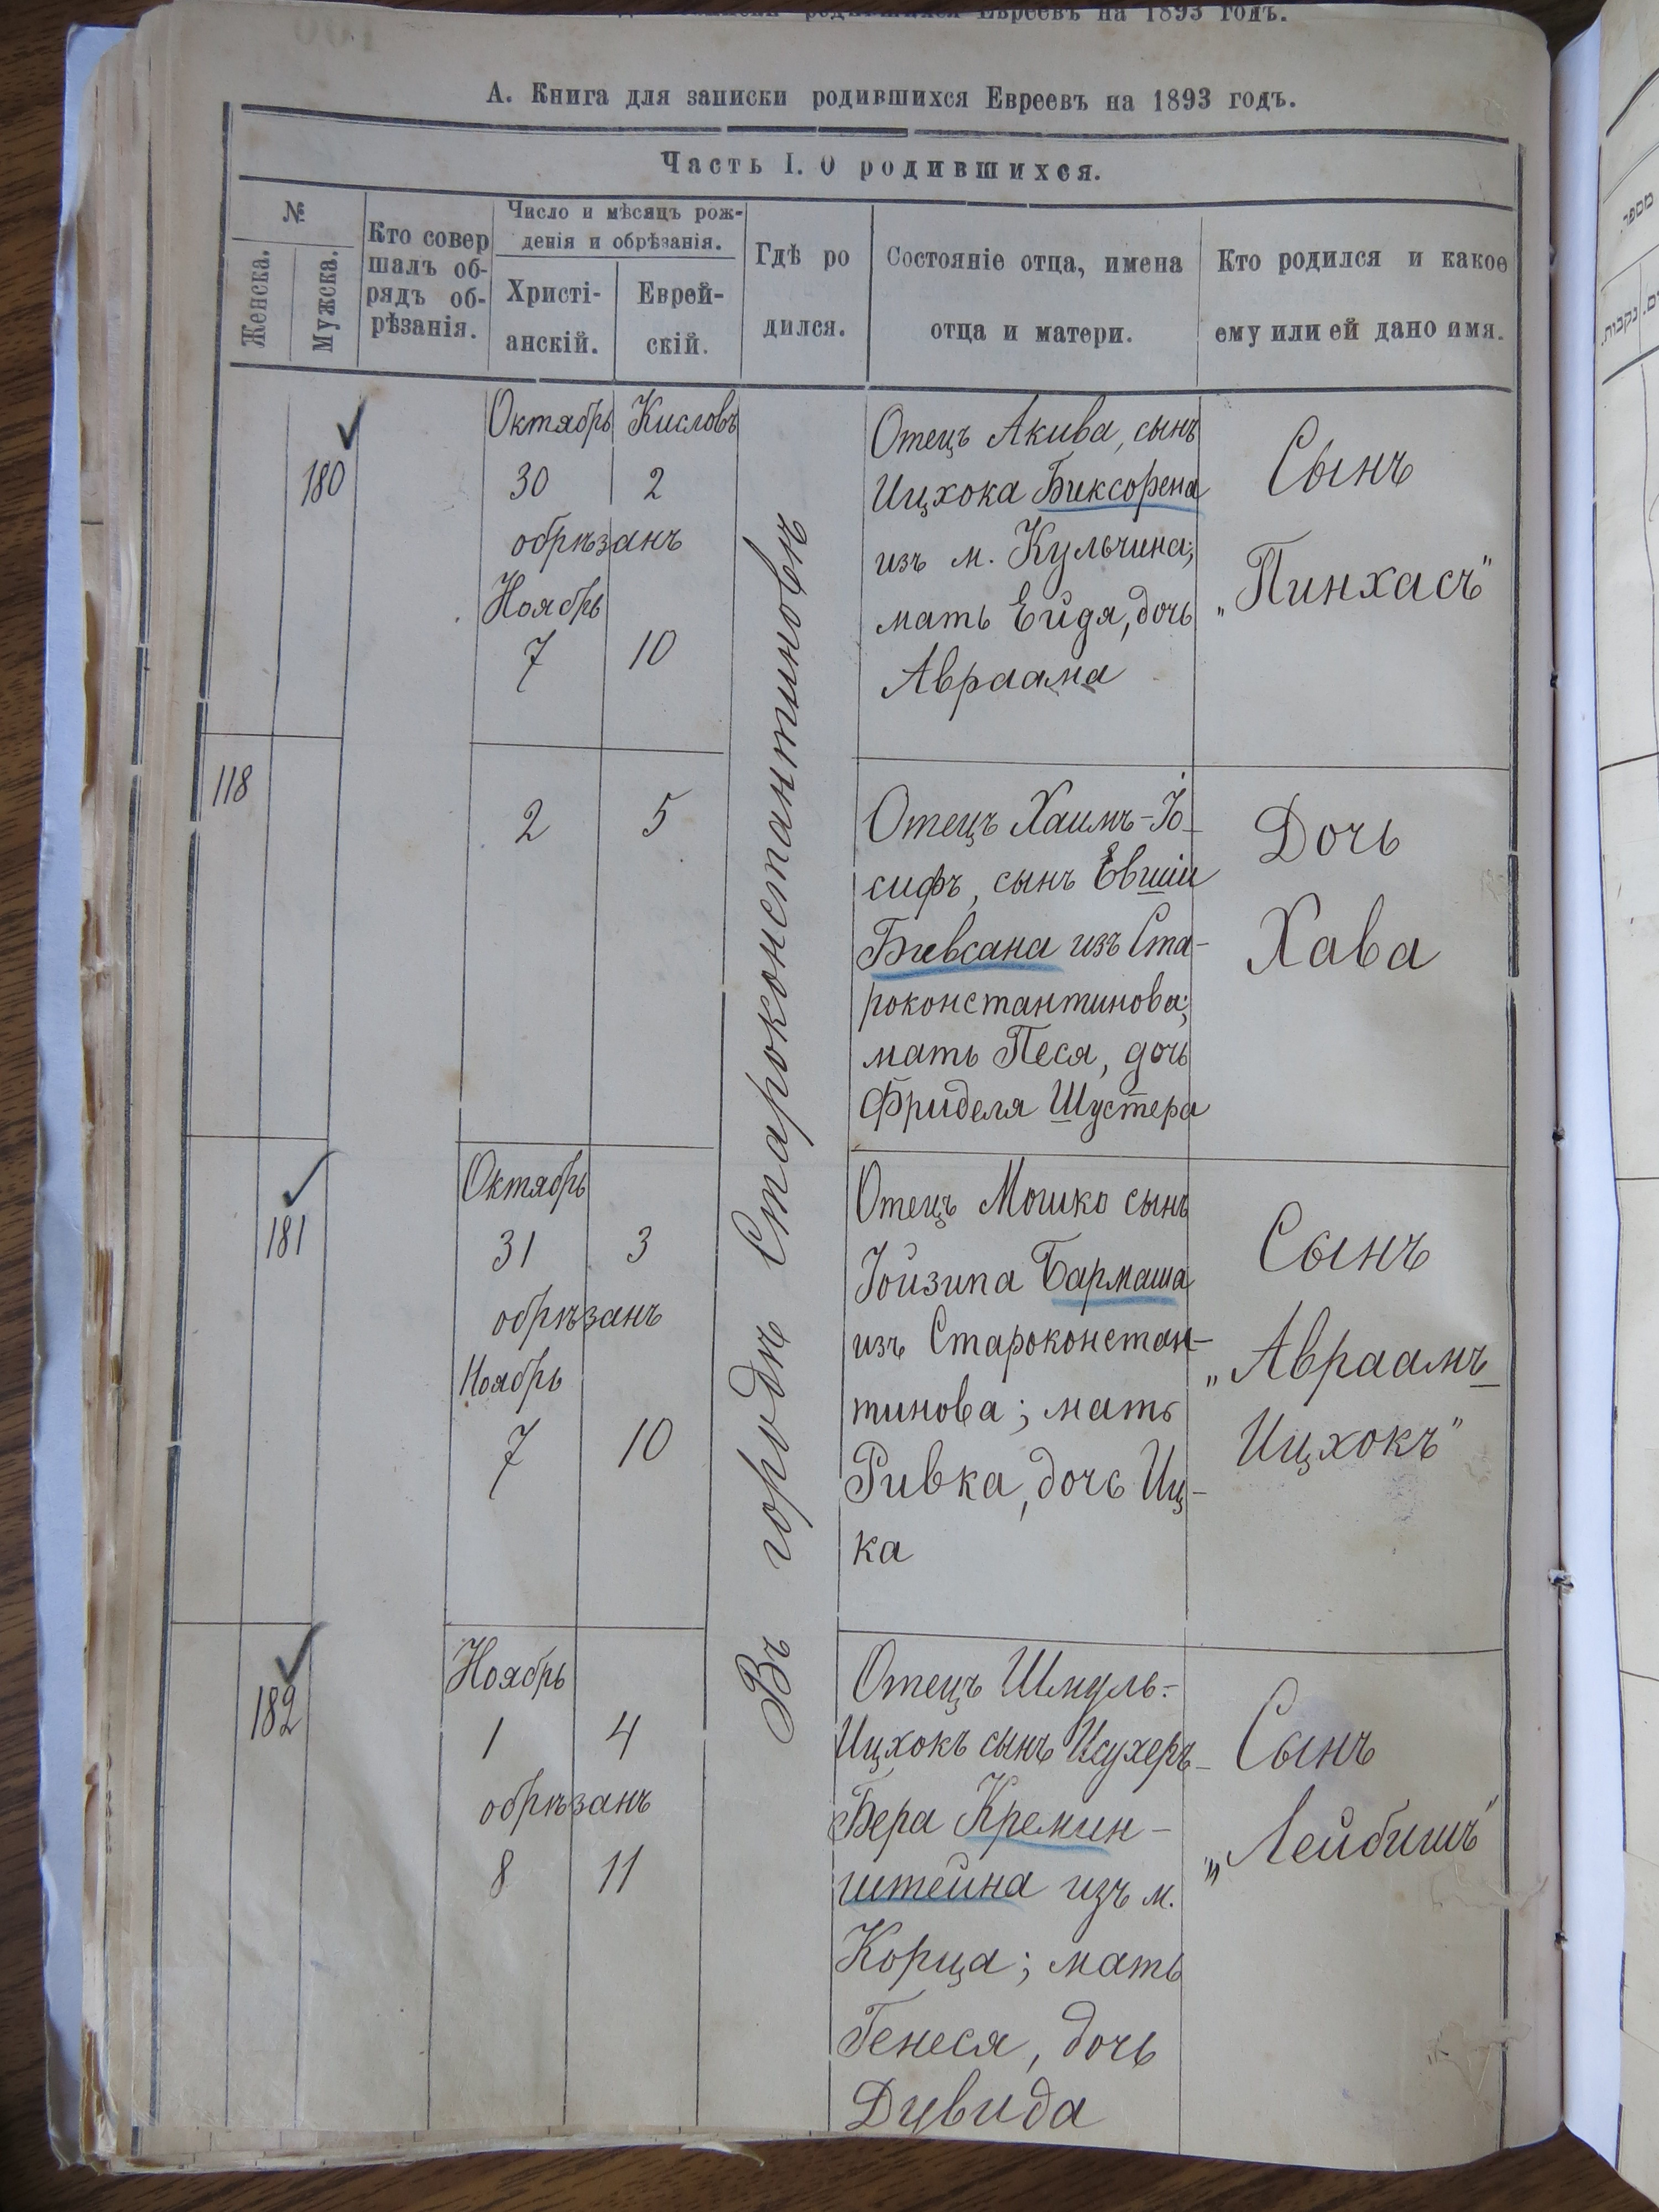 А. Книга для записки родившихся Евреевъ на 1893 годъ.
Часть I. О родившихся.
№
Женска.
Мужска.
Кто совер
шалъ об-
рядъ об-
рѣзанія.
Число и мѣсяцъ рож-
денія и обрѣзанія.
Христі-
анскій.
Еврей-
скій.
Гдѣ ро
дился.
Состояніе отца, имена
отца и матери.
Кто родился и какое
ему или ей дано имя.
Въ городѣ Староконстантиновѣ
180
Октябрь Кисловъ
30 2
обрѣзанъ
Ноябрь
7 10
Отецъ Акива, сынъ
Ицхока Биксорена
изъ м. Кульчина;
мать Ейдя, дочь
Авраама
Сынъ
„Пинхасъ"
118
2 5
Отецъ Хаимъ-Іо-
сифъ, сынъ Евшіи
Бивсана изъ Ста-
роконстантинова;
мать Песя, дочь
Фриделя Шустера
Дочь
Хава
181
Октябрь
31 3
обрѣзанъ
Ноябрь
7 10
Отецъ Мошко сынъ
Іойзипа Бармаша
изъ Староконстан-
тинова; мать
Ривка, дочь Иц-
ка
Сынъ
„Авраамъ
Ицхокъ"
182
Ноябрь
1 4
обрѣзанъ
8 11
Отецъ Шмуль-
Ицхокъ сынъ Исухеръ-
Бера Кремин-
штейна изъ м.
Корца; мать
Генеся, дочь
Дувида
Сынъ
„Лейбишъ"
מספר
נקבות.